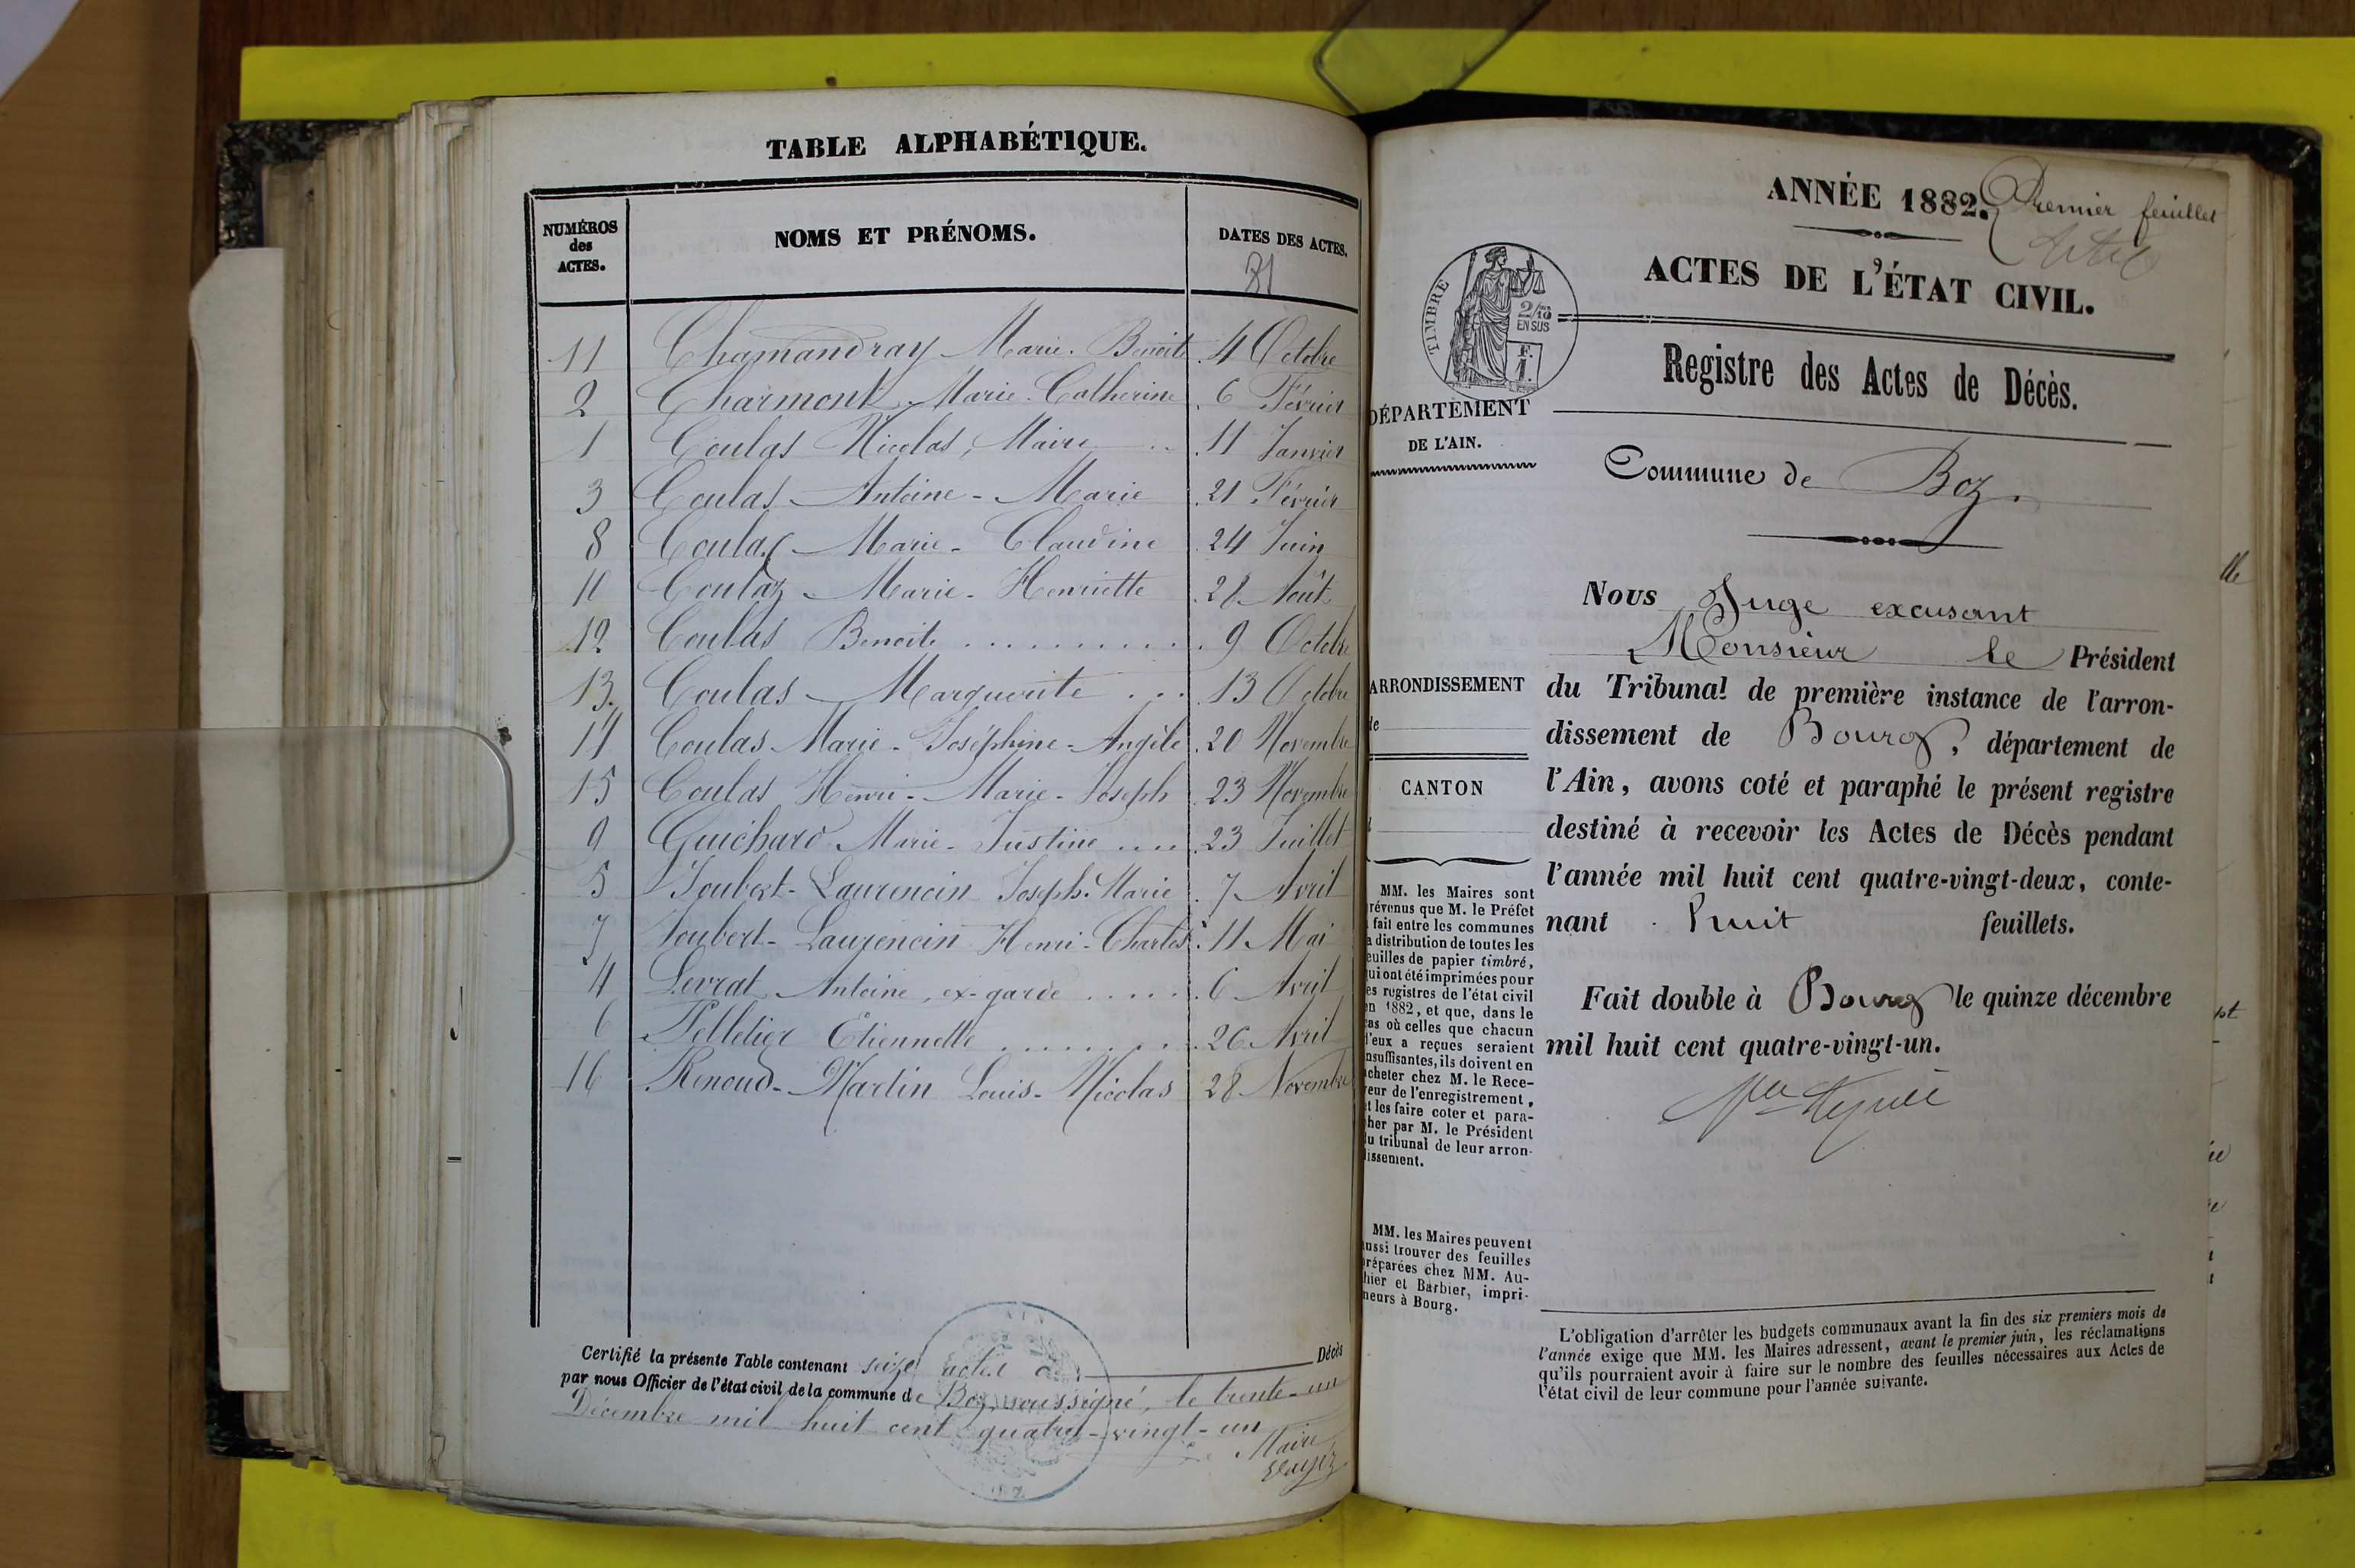 TABLE ALPHABÉTIQUE.
NUMÉROS
des
ACTES.
NOMS ET PRÉNOMS.
DATES DES ACTES.
81
11 Chamandray Marie. Benoit 4 Octobre
2 Charmont Marie-Catherine 6 Février
1 Coulas Nicolas, Maire 11 Janvier
3 Coulas Antoine-Marie 21 Février
8 Coulas Marie-Claudine 24 Juin
10 Coulas Marie-Henriette 28 Août
12 Coulas Benoite 9 Octobre
13. Coulas Marguerite 13 Octobre
14 Coulas Marie-Joséphine-Angèle 20 Novembre
15 Coulas Henri-Marie-Joseph 23 Novembre
9 Guichard Marie-Justine 23 Juillet
5 Joubert-Laurencin Joseph-Marie 7 Avril
7 Joubert-Laurencin Henri-Charles 11 Mai
4 Levrat Antoine, ex-garde 6 Avril
6 Pelletier Etiennette 26 Avril
16 Renoud-Martin Louis-Nicolas 28 Novembre
Certifié la présente Table contenant seize actes de Décès
par nous Officier de l'état civil de la commune de Boz, soussigné, le trente-un
Décembre mil huit cent quatre-vingt-un
Maire
ANNÉE 1882.
Premier feuillet
ACTES DE L'ÉTAT CIVIL.
TIMBRE
2/10
EN SUS
Registre des Actes de Décès.
DÉPARTEMENT
DE L'AIN.
Commune de Boz.
Nous Juge excusant
Monsieur le Président
du Tribunal de première instance de l'arron-
dissement de Bourg, département de
l'Ain, avons coté et paraphé le présent registre
destiné à recevoir les Actes de Décès pendant
l'année mil huit cent quatre-vingt-deux, conte-
nant huit feuillets.
Fait double à Bourg le quinze décembre
mil huit cent quatre-vingt-un.
ARRONDISSEMENT
de
CANTON
MM. les Maires sont
révenus que M. le Préfet
fait entre les communes
a distribution de toutes les
euilles de papier timbré,
ui ont été imprimées pour
es registres de l'état civil
en 1882, et que, dans le
cas où celles que chacun
d'eux a reçues seraient
nsuffisantes, ils doivent en
cheter chez M. le Rece-
veur de l'enregistrement,
et les faire coter et para-
her par M. le Président
du tribunal de leur arron-
dissement.
MM. les Maires peuvent
ussi trouver des feuilles
réparées chez MM. Au-
hier et Barbier, impri-
meurs à Bourg.
L'obligation d'arrêter les budgets communaux avant la fin des six premiers mois de
l'année exige que MM. les Maires adressent, avant le premier juin, les réclamations
qu'ils pourraient avoir à faire sur le nombre des feuilles nécessaires aux Actes de
l'état civil de leur commune pour l'année suivante.